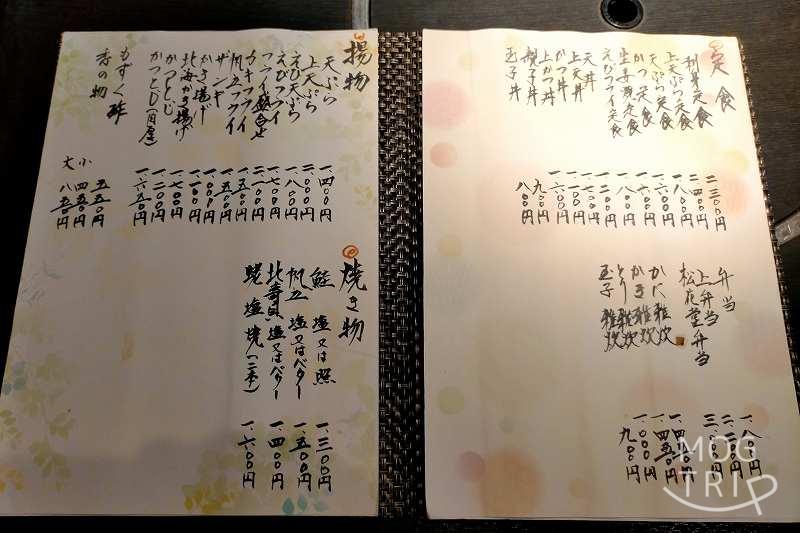 定食
定食
上天ぷら定食
天ぷら定食
かつ定食
生姜焼定食
えびフライ定食
天丼
上天丼
かつ丼
上かつ丼
親子丼
玉子丼
二、三〇〇円
一、八〇〇円
一、六〇〇円
一、七〇〇円
一、八〇〇円
九〇〇円
八〇〇円
弁当
上弁当
松花堂弁当
かに雑炊
かき雑炊
とり雑炊
玉子雑炊
一、八〇〇円
三、〇〇〇円
一、四五〇円
一、〇〇〇円
九〇〇円
揚物
天ぷら
上天ぷら
えび天ぷら
えびフライ
フライ盛合せ
カキフライ
帆立フライ
ザンギ
かき揚げ
北海かき揚げ
かつとじ
もずく酢
香の物
一、四〇〇円
二、〇〇〇円
一、八〇〇円
一、七〇〇円
一、五〇〇円
一、五〇〇円
一、七〇〇円
一、二〇〇円
一、六五〇円
五五〇円
小 四五〇円
大 八五〇円
焼き物
鮭 塩又は照
帆立 塩又はバター
北寄貝 塩又はバター
塩焼(二本)
一、三〇〇円
一、五〇〇円
一、四〇〇円
一、六〇〇円
MOG
TRIP